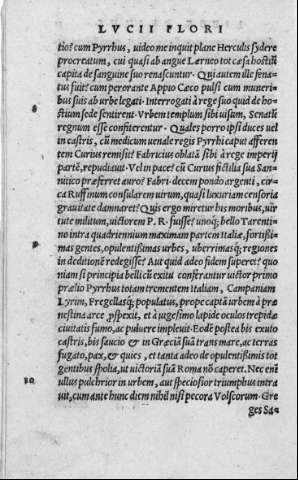 LVCII FLORI
tio? cum Pyrrhus, uideo me inquit plane Herculis sydere
procreatum, cui quasi ab angue Lærneo tot cæsa hostiũ
capita de sanguine suo renascuntur. Qui autem ille sena-
tus fuit? cum perorante Appio Cæco pulsi cum muneri-
bus suis ab urbe legati. Interrogati à rege suo quid de ho-
stium sede sentirent. Vrbem templum sibi uisum, Senatũ
regnum esse confiterentur. Quales porro ipsi duces uel
in castris, cũ medicum uenale regis Pyrrhi caput afferen
tem Curius remisit? Fabricius oblatã sibi à rege imperij
partẽ, repudiauit. Vel in pace? cũ Curius fictilia sua San-
nitico præferret auro? Fabri. decem pondo argenti, cir-
ca Ruffinum consularem uirum, quasi luxuriam censoria
grauitate damnaret? Qui ergo miretur his moribus, uir
tute militum, uictorem P. R. fuisse? unoq; bello Tarenti-
no intra quadriennium maximam partem Italiæ, fortissi-
mas gentes, opulentissimas urbes, uberrimasq; regiones
in deditionẽ redegisse? Aut quid adeo fidem superet? quo
niam si principia belli cũ exitu conferantur uictor primo
prælio Pyrrhus totam trementem Italiam, Campaniam
Lyrim, Fregellasq; populatus, prope captã urbem à præ
nestina arce pspexit, et à uigesimo lapide oculos trepidæ
ciuitatis fumo, ac puluere impleuit. Eodẽ postea bis exuto
castris, bis saucio & in Græciã suã trans mare, ac terras
fugato, pax, & quies, et tanta adeo de opulentissimis tot
gentibus spolia, ut uictoriã suã Roma nõ caperet. Nec em̃
20 ullus pulchrior in urbem, aut speciosior triumphus intra
uit, cum ante hunc diem nihil nisi pecora Volscorum. Gre
ges Sa-